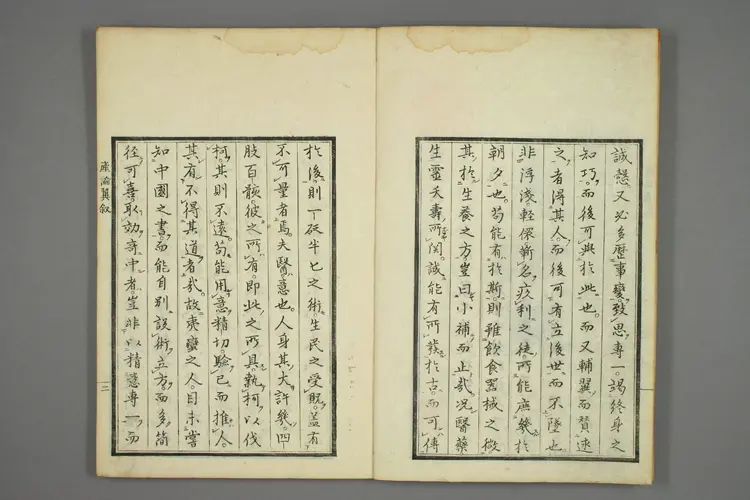 誠懇又必多歷事變致思專一竭終身之
知巧而後可與於此也而又輔翼而賛述
之者得其人而後可者立後世而不墜也
非浮淺輕保斬名疚利之徒所能庶幾於
朝夕也苟能有於斯則雖飲食器械之微
其於生養之方豈曰小補而止哉况醫藥
生靈夭壽所関誠能有所發於古而可傳
於後則一砭半匕之術生民之受賜蓋有
不可量者焉夫醫意也人身其大許幾四
肢百骸彼之所有即此之所具執柯以伐
柯其則不遠苟能用意精切驗己而推人
其有不得其道者哉故夷蠻之人目未嘗
知中國之書而能自別設術立方而多簡
徑可喜取効奇中者豈非以精意專一而
産論翼叙
三